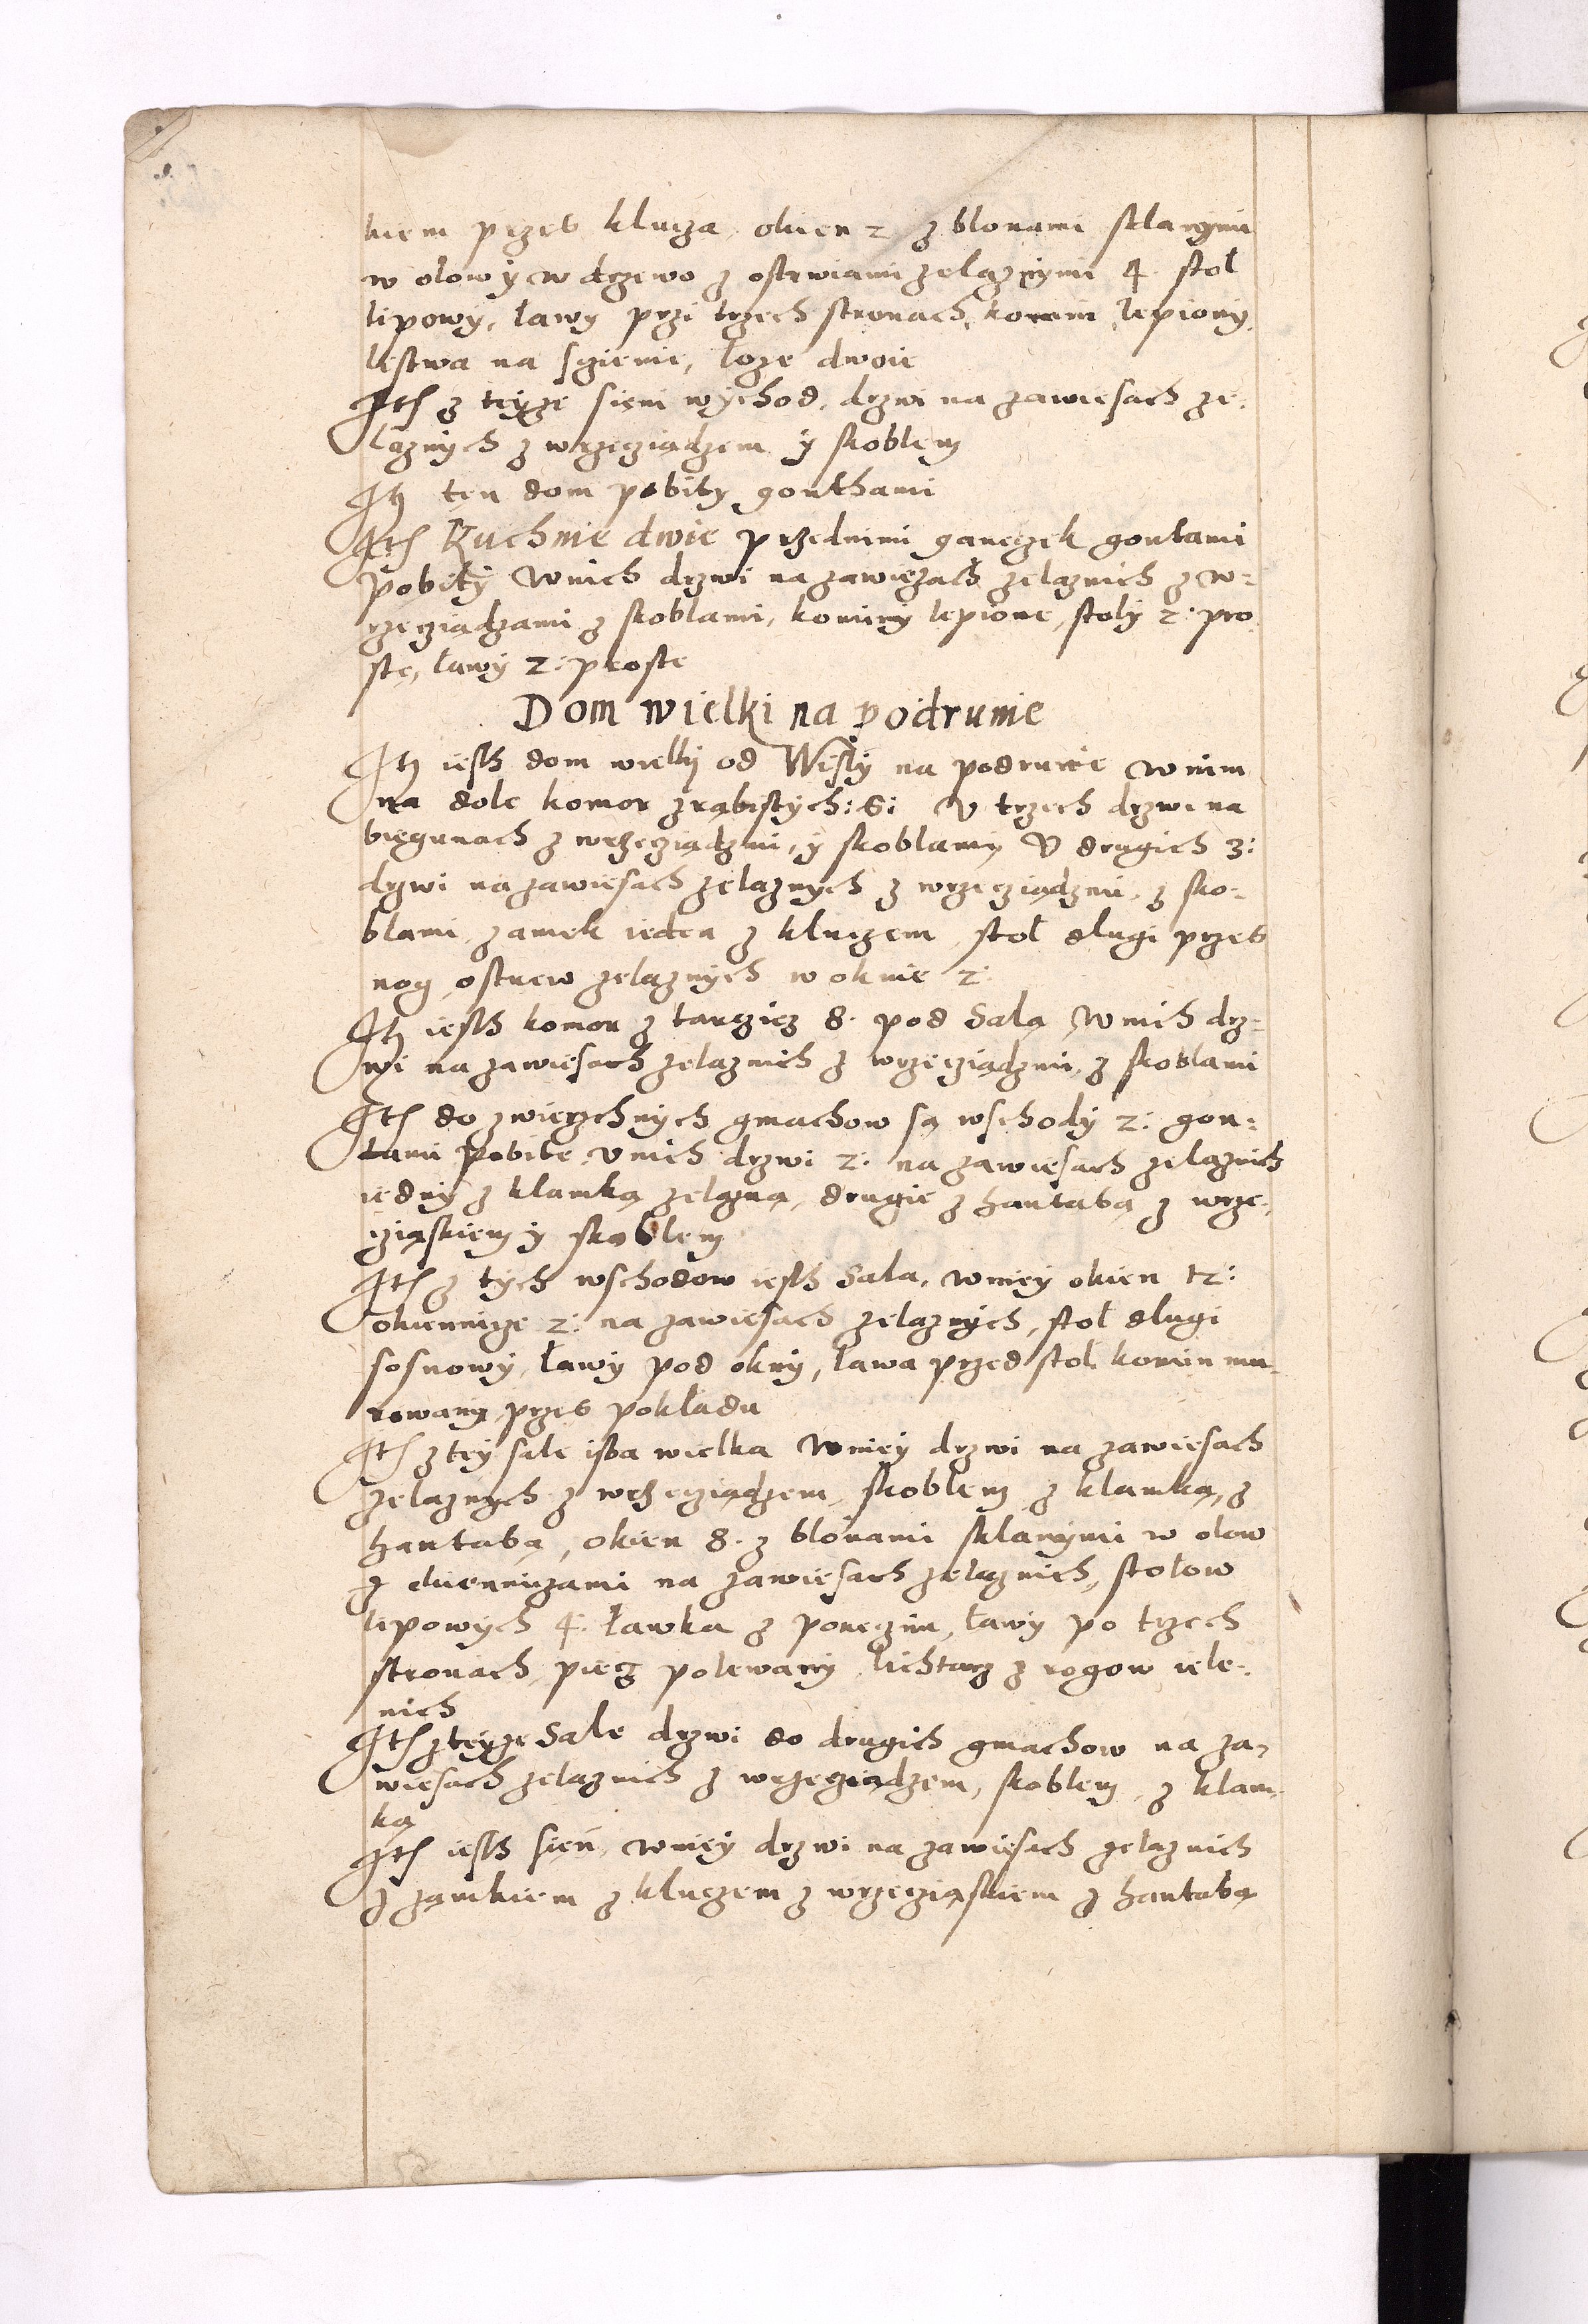 kiem przes klucza okien 2 z blonami sklanymi
w olow y w drzewo z ostrwiami zelaznymi 4. stoł
lipowy, ławy przi trzech stronach, komin lepiony,
listwa na sgienie, łoze dwoie
Ith z teyze sieni wychod, drzwi na zawiesach ze:
laznych z wrzecziadzem y skoblem
Itz ten dom pobity gonthami
Ith Kuchnie dwie przednimi ganczek gontami
pobity wnich drzwi na zawiezach zelaznich z w:
rzecziadzami z skoblami, kominy lepione, stoly 2: pro
ste, ławy 2: proste
Dom wielki na podrumie
Itz iesth dom wielki od Wisły na podrumie w nim
na dole komor zrabistych: 6: V trzech drzwi na
biegunach z wrzecziadzmi, y skoblamy V drugich 3:
drzwi na zawiesach zelaznych z wrzecziadzmi, z sko:
blami, zamek ieden z kluczem, stoł dlugi przes
nog, ostrew zelaznych w oknie 2:
Itz iesth komor z tarczicz 8. pod Salą w nich drz:
wi na zawiesach zelaznich z wrzecziadzmi, z skoblami
Ith do zwierzchnych gmachow są wschody 2: gon:
tami pobite, v nich drzwi 2: na zawiesach zelaznich
iedny z klamką zelazną, drugie z hantabą z wrze:
cziąskiem y skoblem
Ith z tych wschodow iesth Sala, w niey okien 12:
okiennicze 2: na zawiesach zelaznych, stoł dlugi
sosnowy, ławy pod okny, ława przed stoł komin mu
rowany przes pokładu
Ith z tey sale isba wielka w niey drzwi na zawiesach
zelaznych z wrzecziadzem, skoblem z klamką, z
hantabą, okien 8. z blonami sklanymi w olow
z okienniczami na zawiesach zelaznich, stolow
lipowych 4: ławka z poreczim, ławy po trzech
stronach, piecz polewany, lichtarz z rogow iele:
nich
Ith z teyze Sale drzwi do drugich gmachow na za:
wiesach zelaznich z wrzecziadzem, skoblem, z klam:
ką
Ith iesth sień, w niey drzwi na zawiesach zelaznich
z zamkiem z kluczem z wrzecziąskiem z hantabą